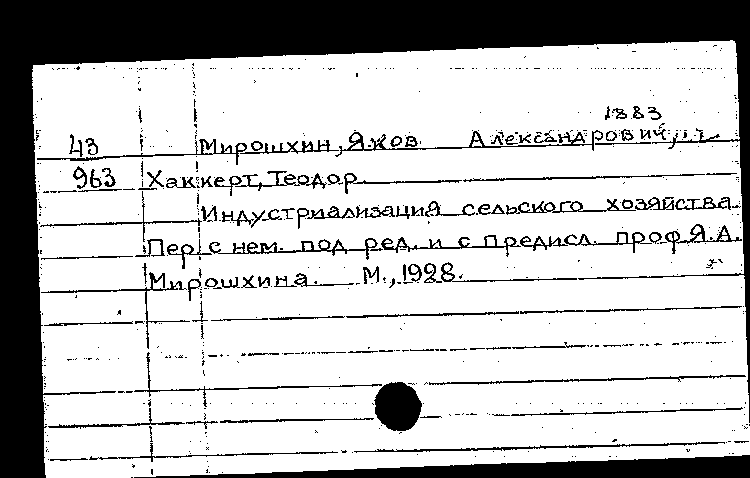 1883
43 Мирошхин, Яков Александрович,
963 Хаккерт, Теодор.
Индустриализация сельского хозяйства.
Пер. с нем. под ред. и с предисл. проф. Я.А.
Мирошхина. М., 1928.